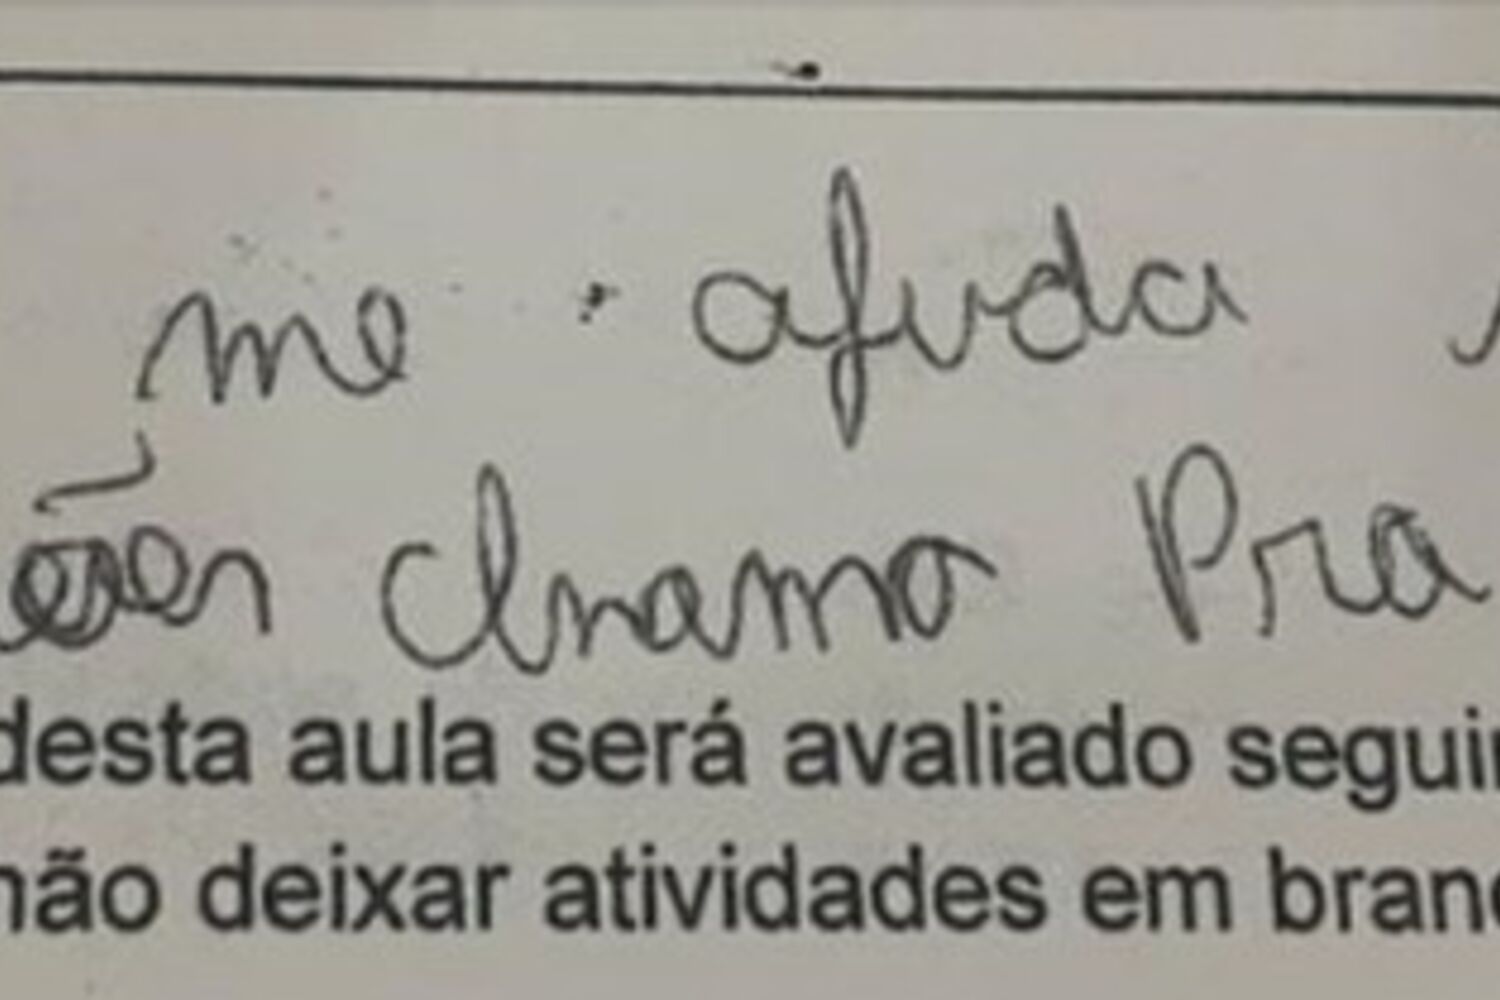 me afuda
chama Pra
desta aula será avaliado seguir
não deixar atividades em branc